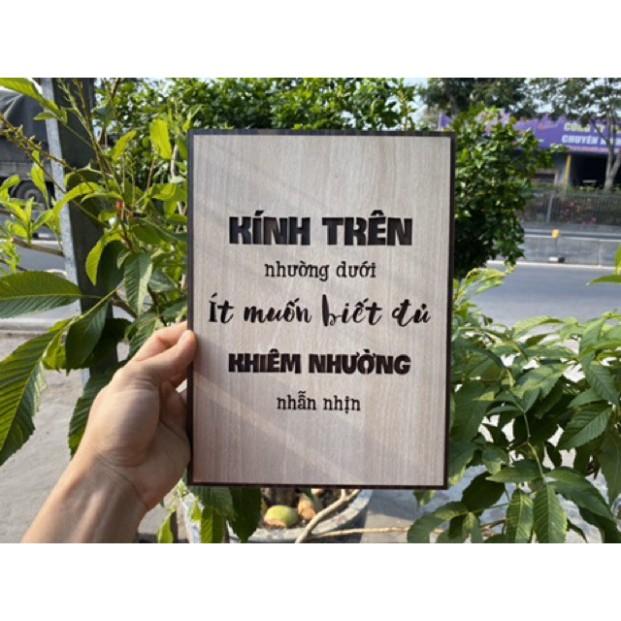 KÍNH TRÊN
nhường dưới
ít muốn biết đủ
KHIÊM NHƯỜNG
nhẫn nhịn
CÔNG TY
CHUYÊN